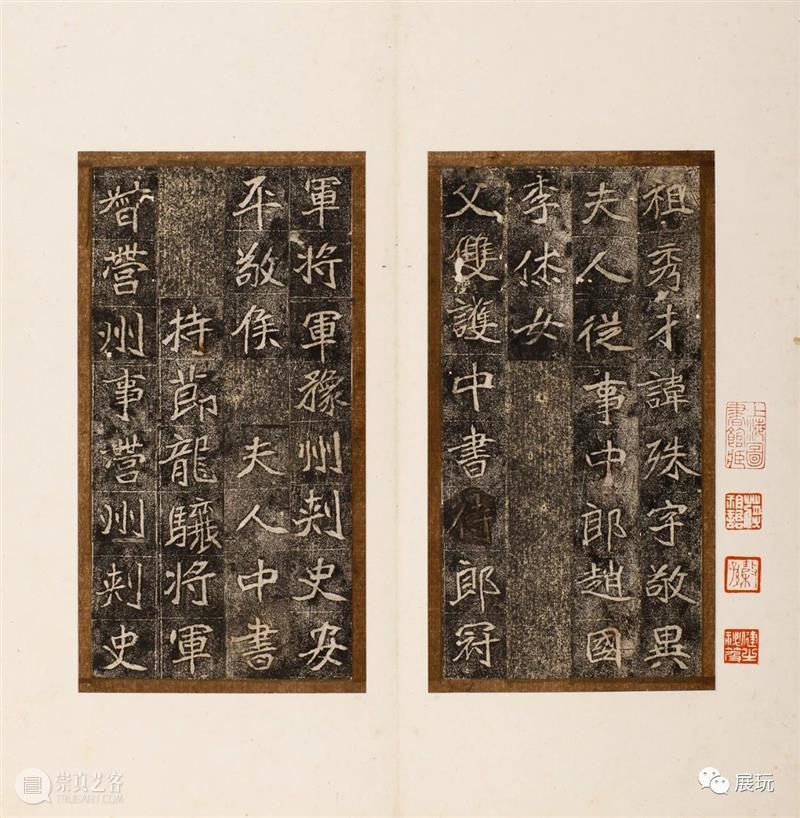 祖秀才諱殊字敬異
夫人從事中郎趙國
李休女
父雙護中書侍郎冠
軍將軍豫州刺史安
平敬侯 夫人中書
持節龍驤將軍
督營州事營州刺史
上海圖書館藏
崇真艺客
TRUEART.COM
展玩